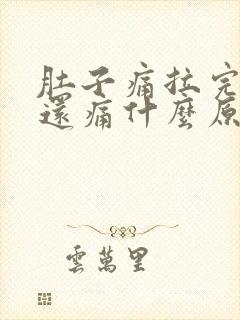 肚子痛拉完
還痛什麼原
雲萬里